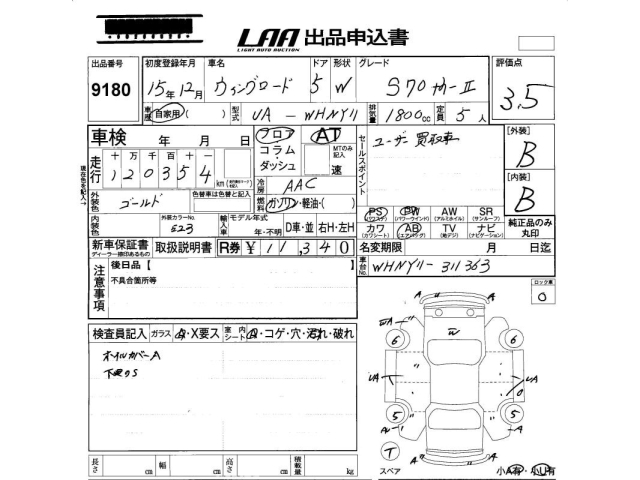 LAA 出品申込書
LIGHT AUTO AUCTION
出品番号 初度登録年月 車名 ドア 形状 グレード 評価点
9180 15年12月 ウィングロード 5 W 3.5
車歴 自家用 ( ) 型式 UA - WHNY11 排気量 1800cc 定員 5人
車検 年 月 日 フロア AT セールスポイント ユーザー買取車 【外装】
コラム・ダッシュ MTのみ記入 速 B
走行 十万千百十一
120354 km
冷房 AAC 【内装】
外装色 ゴールド 色替車は色替と記入 燃料 ガソリン・軽油・( ) B
PS PW AW SR
(パワステ) (パワーウインド) (アルミホイル) (サンルーフ)
内装色 外装カラーNo. 523 輸入車 モデル年式 年・不明 D車・並 右H・左H カワ AB TV ナビ 純正品のみ丸印
(カワシート) (エアバッグ) (地デジ) (ナビゲーション)
新車保証書 取扱説明書 R券 ¥11,340 名変期限 月 日迄
ディーラー捺印あるもの
車台No. WHNY11-311363
注意事項 後日品【
不具合箇所等
ロック車
0
検査員記入 ガラス A・X要ス 室内シート A・コゲ・穴・汚れ・破れ
オイルカバーA
下廻りS
A A
6 6
UA UA
5 5
T
スペア 小A有・小U有
長さ cm 幅 cm 高さ cm 積載量 kg